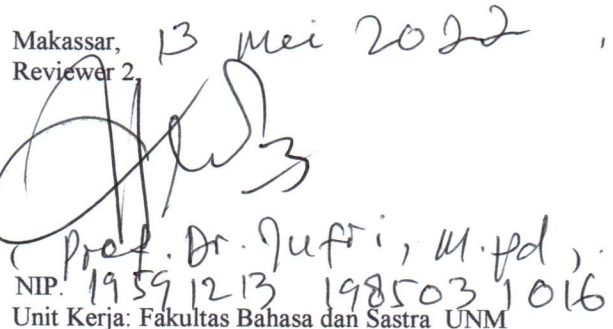 Makassar, 13 Mei 2022
Reviewer 2,
Prof. Dr. Jufri, M.pd,
NIP. 19591213 198503 1016
Unit Kerja: Fakultas Bahasa dan Sastra UNM